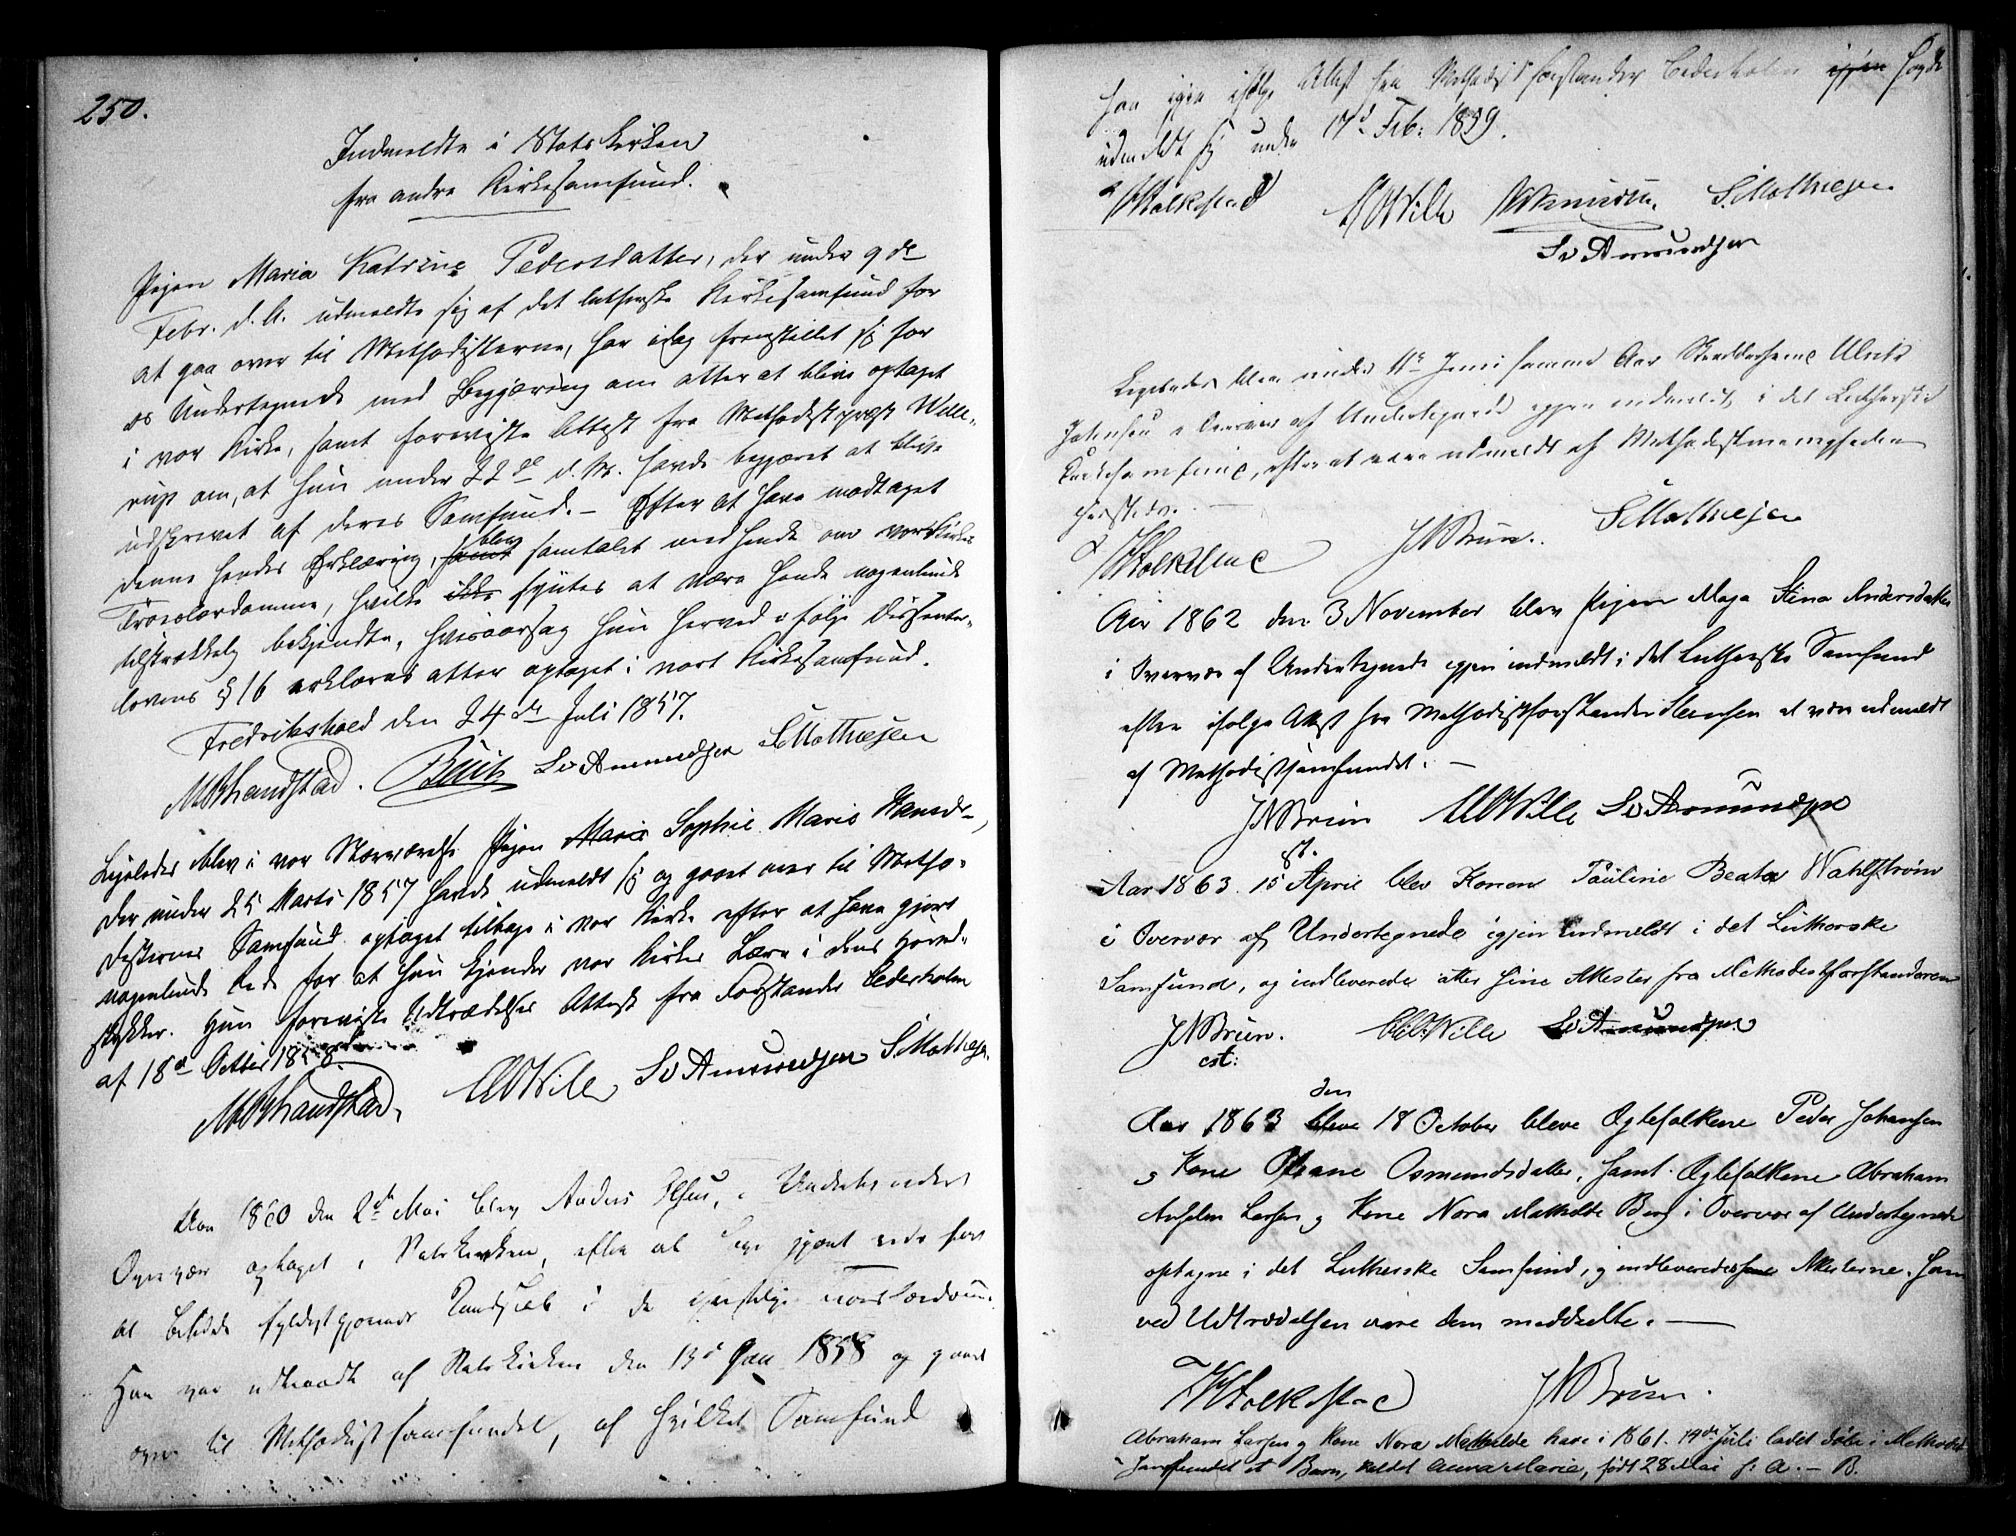 250.
Indmeldte i Statskirken
fra andre Kirkesamfund.
Pigen Maria Katrine Pedersdatter, der under 9de
Febr. d. A. udmeldte sig af det lutherske Kirkesamfund for
at gaa over til Methodisterne, har idag fremstillet sig for
os Undertegnede med Begjæring om atter at blive optaget
i vor Kirke, samt foreviste Attest fra Methodistpræst Wille-
rup om, at hun under 22de d. M. havde begjæret at blive
udskrevet af deres Samfund. – Efter at have modtaget
denne hendes Erklæring, blev samtalet med hende om vor Kirkes
Troeslærdomme, hvilke syntes at være hende nogenlunde
tilstrækkelig bekjendte, hvisaarsag hun herved i følge Dissenter-
lovens § 16 erklæres atter optaget i vort Kirkesamfund.
Fredrikshald den 24de Juli 1857.
M Brandstad. Sv Amundsen S Mathiesen
Ligeledes blev i vor Nærværelse Pigen Marie Sophie Marie Hansd-,
der under 25 Marts 1857 havde udmeldt sig og gaaet over til Metho-
disternes Samfund optaget tilbage i vor Kirke efter at have gjort
nogenlunde Rede for at hun kjender vor Kirkes Lære i dens Hoved-
stykker. Hun foreviste Udtrædelses Attest fra Forstander Cederholm
af 18d Octbr 1858.
M Brandstad, Wille Sv Amundsen S Mathiesen
Aar 1860 den 2de Mai blev Anders Olsen, i Undertegnedes
Overvær optaget i Statskirken, efter at have gjort rede for
at besidde fyldestgjørende Kundskab i de christelige Troeslærdomme.
Han var udtraadt af Statskirken den 13d Jan 1858 og gaaet
over til Methodistsamfundet, af hvilket Samfund
han igjen ifølge Attest fra Methodistforstander Cederholm igjen havde
udmeldt sig under 17d Feb: 1859.
Wille S. Mathiesen
Sv Amundsen
Ligeledes blev under 11te Juni samme Aar
i Overvær af Undertegnede igjen indmeldt i det Lutherske
Kirkesamfund, efter at være udmeldt af Methodistmenigheden
hersteds.
JN Brun. S Mathiesen
Aar 1862 den 3 November blev Pigen Maja Stina Andersdatter
i Overvær af Undertegnede igjen indmeldt i det Lutherske Samfund
efter ifølge Attest fra Methodistforstander Steensen at være udmeldt
af Methodistsamfundet. –
JN Brun Wille Sv Amundsen
st.
Aar 1863. 15 April blev Konen Pauline Beata Wahlstrøm
i Overvær af Undertegnede igjen indmeldt i det Lutherske
Samfund, og indleverede atter sine Attester fra Methodistforstanderen
JN Brun. Wille Sv Amundsen
cst:
den
Aar 1863 bleve 18 October bleve Egtefolkene Peder Johansen
og Kone Osmundsdatter, samt Egtefolkene Abraham
Larsen og Kone Nora Mathilde Berg i Overvær af Undertegnede
optagne i det Lutherske Samfund, og indleverede Attesterne, som
ved Udtrædelsen vare dem meddeelte. –
JN Brun.
Abraham Larsen og Kone Nora Mathilde have i 1861. 19de Juli ladet døbe i Methodist
Samfundet et Barn, kaldet Anna Marie, født 28 Mai s: A. – B.